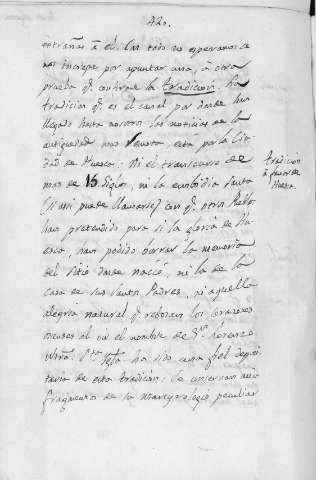 420.
entrañas à él. Con todo no esperamos se
nos increpe por apuntar una, à otra
prueba q.e confirme la tradicion. La
tradicion q.e es el canal por donde han
llegado hasta nosotros las noticias de la
antiguedad mas remota, està por la Ciu
dad de Huesca: Ni el transcurso de
mas de 15 Siglos, ni la embidia santa
(si asi puede llamarse) con q.e otros Pueblos
han pretendido para sì la gloria de Hu
esca, han podido borrar la memoria
del sitio donde naciò, ni la de la
casa de sus Santos Padres, ni aquella
alegria natural q.e rebosan los corazones
oscenses al oir el nombre de S.n Lorenzo.
Ntra S.ta Igla ha sido una fiel deposi
taria de esta tradicion: la conservan aun
fragmentos de la martyrologio peculiar
Tradicion
à favor de
Huesca.